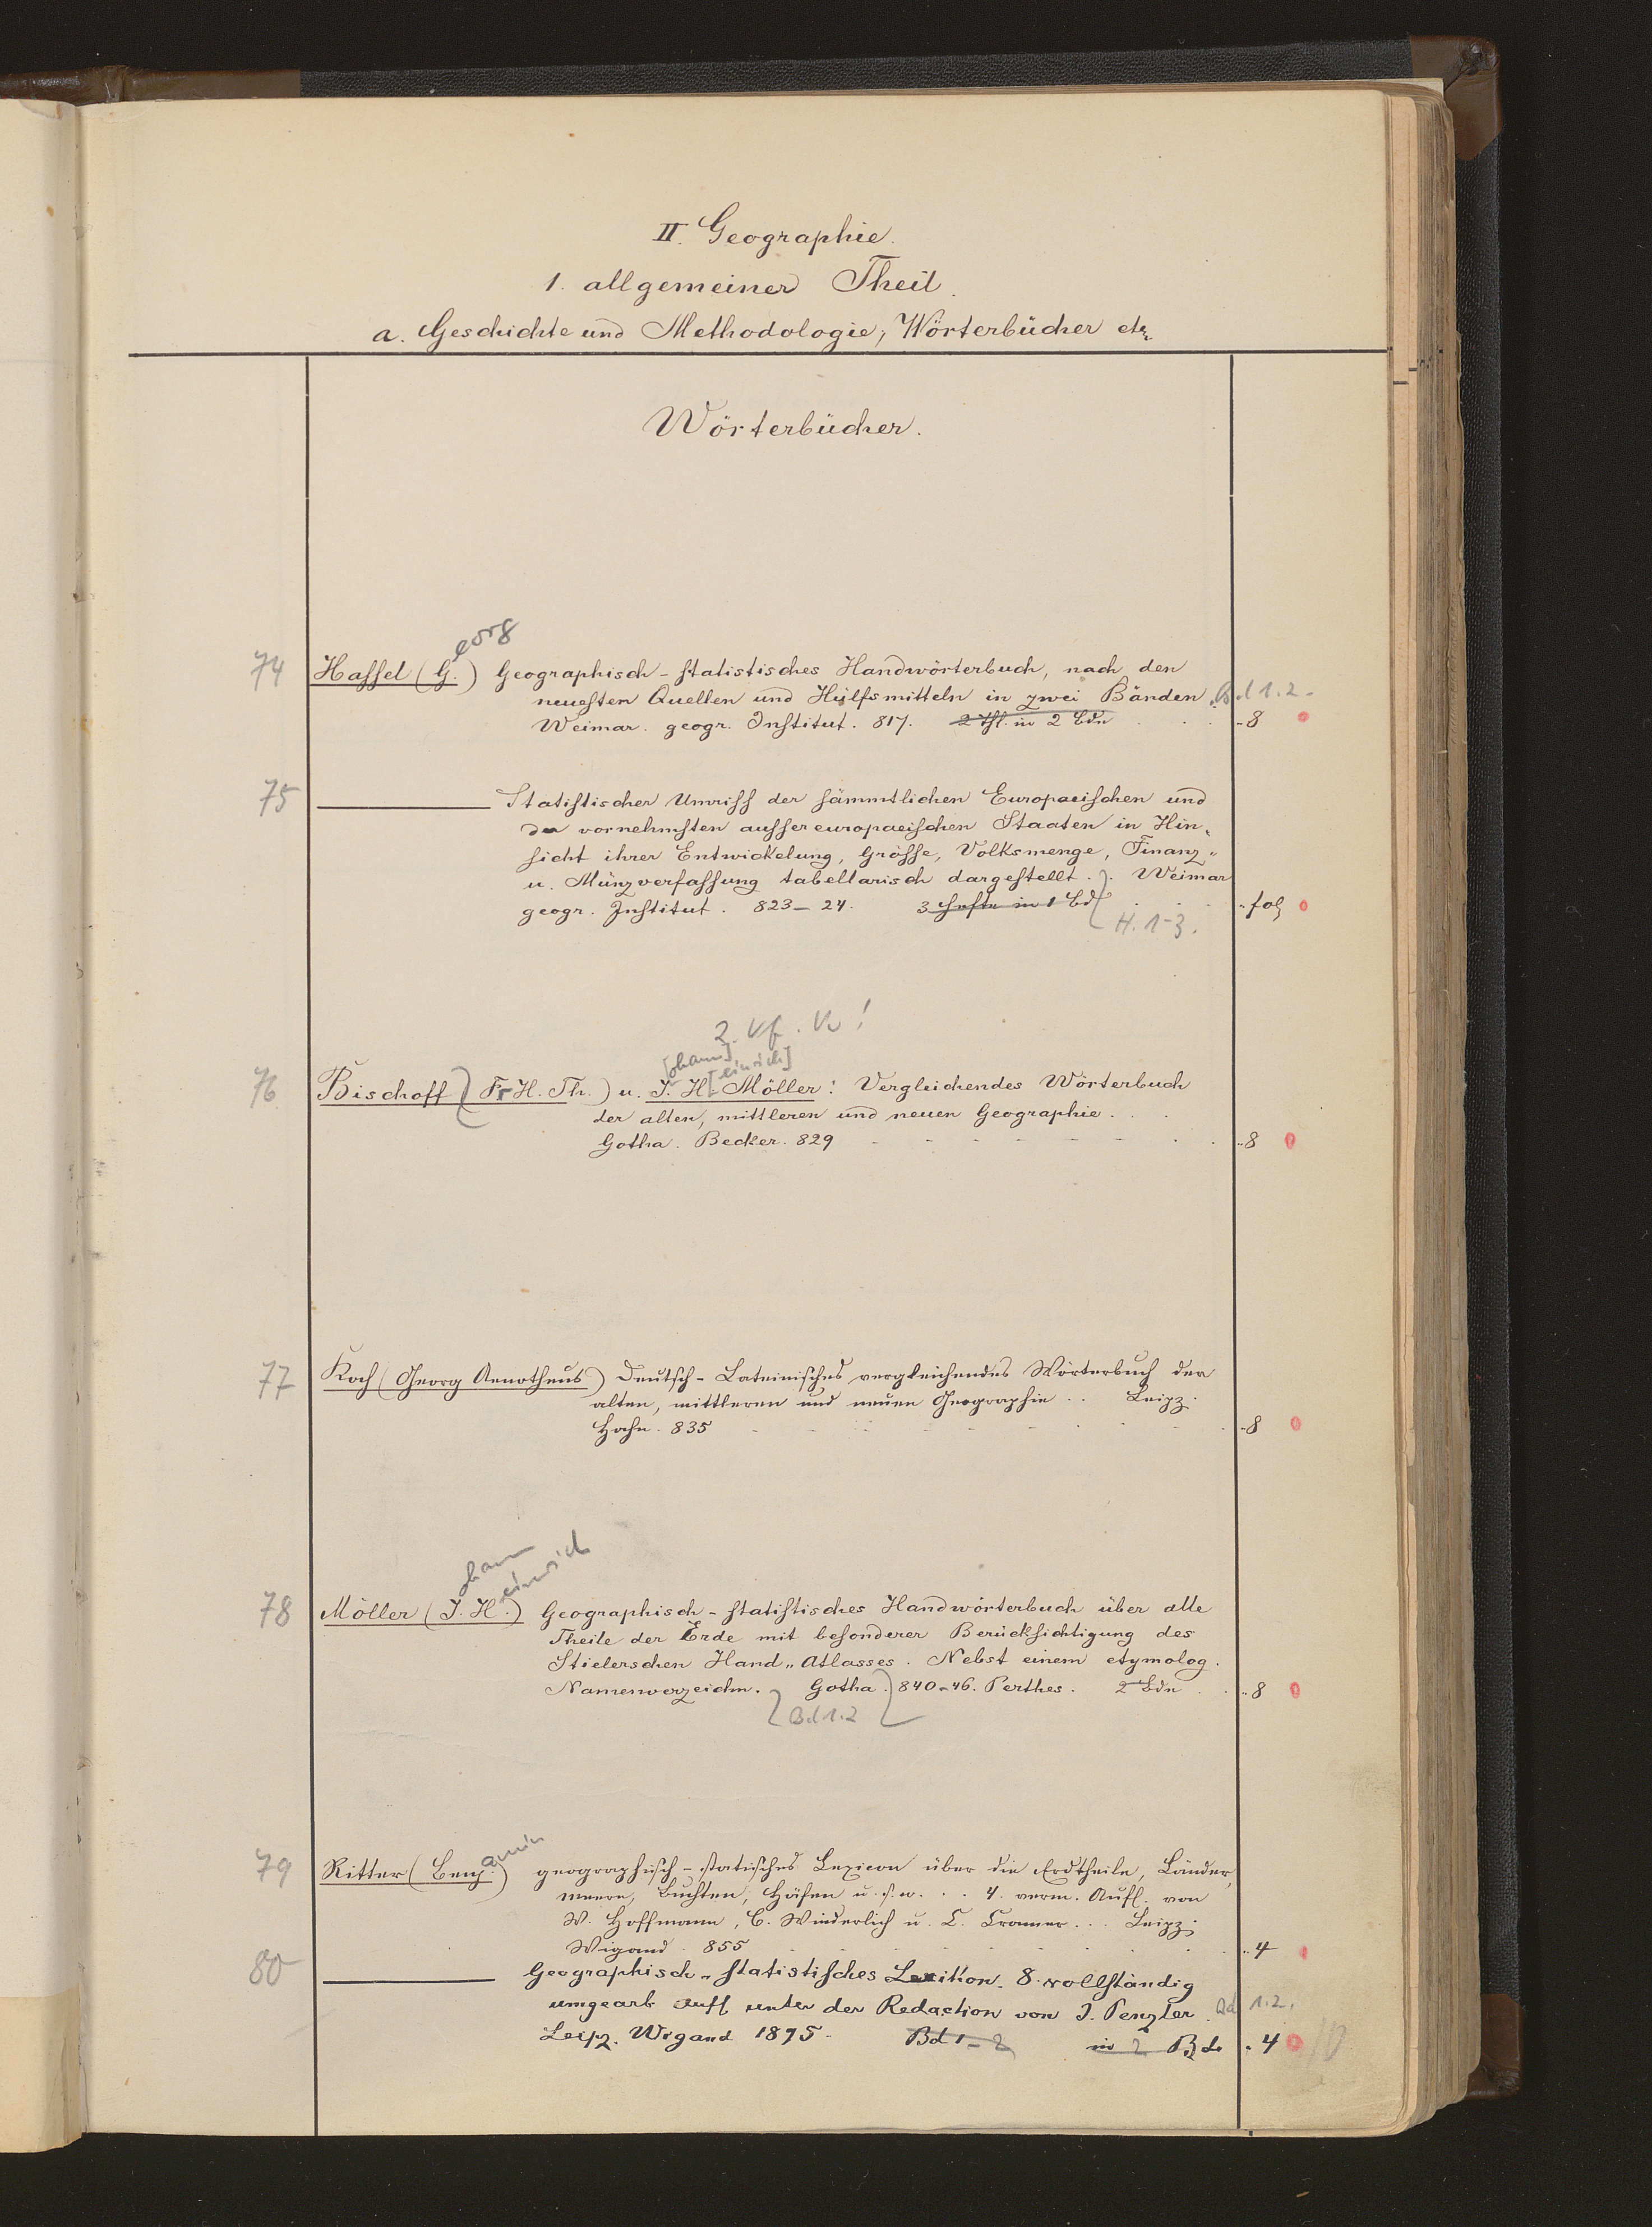 II. Geographie.
1. allgemeiner Theil.
a. Geschichte und Methodologie, Wörterbücher etc.
Wörterbücher.
eorg
74 Hassel (G.) Geographisch-statistisches Handwörterbuch, nach den
neuesten Quellen und Hülfsmitteln in zwei Bänden. Bd 1.2.
Weimar. geogr. Institut. 817. 2 Thl. in 2 Bdn . . . 8
75 Statistischer Umriss der sämmtlichen Europaeischen und
der vornehmsten aussereuropaeischen Staaten in Hin„
sicht ihrer Entwickelung, Grösse, Volksmenge, Finanz„
u. Münzverfassung tabellarisch dargestellt . . Weimar
geogr. Institut. 823-24. 3 Hefte in 1 Bd . . fol
H. 1-3.
2. Vf. !
[ohann] [einrich]
76 Bischoff (Fr H. Th.) u. J. H. Möller: Vergleichendes Wörterbuch
der alten, mittleren und neuen Geographie . . .
Gotha. Becker. 829 - - - - - - . . 8
77 Koch (Georg Aenotheus) Deutsch-Lateinisches vergleichendes Wörterbuch der
alten, mittleren und neuen Geographie . . Leipz.
Hahn. 835 - - - - - - . . 8
ohann einrich
78 Möller (J. H.) Geographisch-statistisches Handwörterbuch über alle
Theile der Erde mit besonderer Berücksichtigung des
Stielerschen Hand„Atlasses. Nebst einem etymolog.
Namenverzeichn. Gotha. 840-46. Perthes. 2 Bdn . . 8
Bd 1.2
amin
79 Ritter (Benj.) geographisch-statisches Lexicon über die Erdtheile, Länder,
meere, Buchten, Häfen u.s.w. . . 4. verm. Aufl. von
W. Hoffmann, C. Winderlich u. C. Cramer . . . Leipz.
Wigand. 855 . . . . . 4
80 Geographisch-statistisches Lexikon. 8. vollständig
umgearb Aufl unter der Redaction von J. Penzler. Bd 1.2.
Leipz. Wigand 1895. Bd 1-2 in 2 Bde . 4